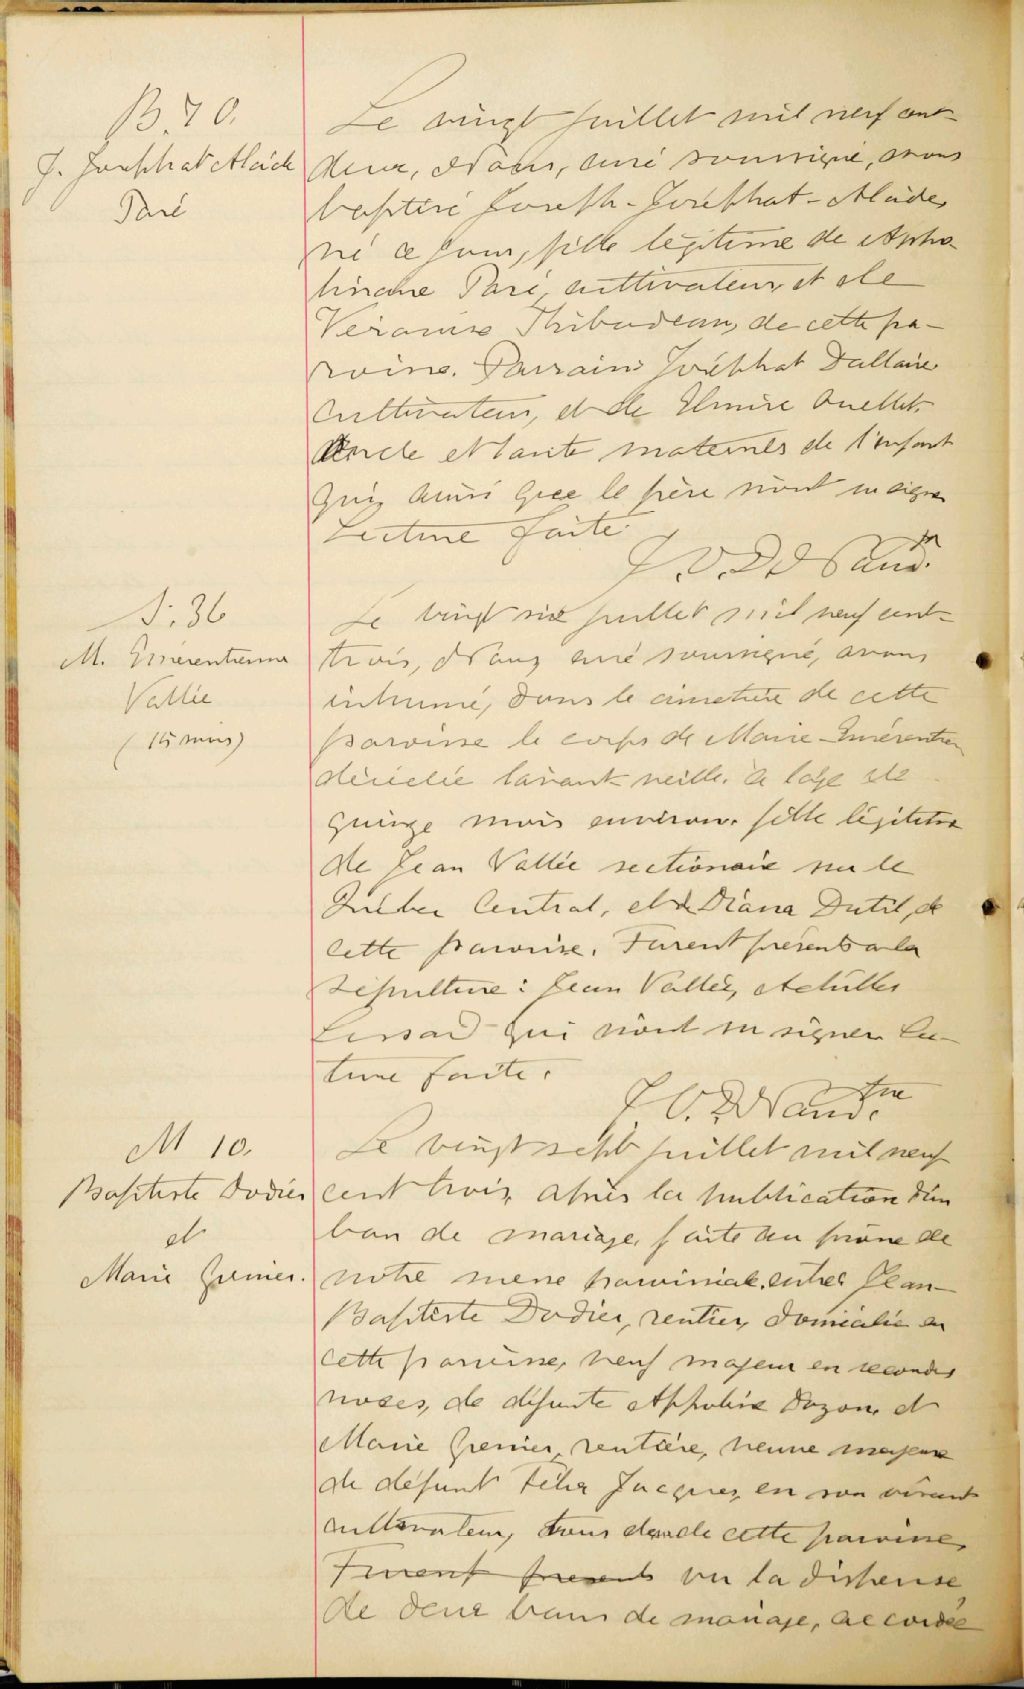 B. 70.
J. Joséphat Alcide
Paré
Le vingt juillet mil neuf cent-
deux, Nous, curé soussigné, avons
baptisé Joseph-Joséphat-Alcide,
né ce jour, fille légitime de
Paré, cultivateur, et de
Thibodeau, de cette pa-
roisse. Parrain Joséphat Dallaire
cultivateur, et de Elmire Ouellet,
Oncle et tante maternels de l'enfant
qui, ainsi que le père n'ont su signer
Lecture faite.
S. 36
M. Emérentienne
Vallée
(15 mois)
Le vingt six juillet mil neuf cent-
trois, Nous, curé soussigné, avons
inhumé, dans le cimetière de cette
paroisse le corps de Marie-Emérentien
décédée l'avant-veille, à l'age de
quinze mois environ, fille légitime
de Jean Vallée sectionaire sur le
Québec Central, et de Diana Dutil, de
cette paroisse. Furent présents a la
sépulture : Jean Vallée, Achilles
Lessard qui n'ont su signer. Lec-
ture faite.
M 10.
Baptiste Dodier
et
Marie Grenier.
Le vingt sept juillet mil neuf
cent trois, après la publication d'un
ban de mariage, faite au prône de
notre messe paroissiale, entre Jean-
Baptiste Dodier, rentier, domicilié en
cette paroisse, veuf majeur en secondes
noces, de défunte Appoline et
Marie Grenier, rentière, veuve majeure
de défunt Félix Jacques, en son vivant
cultivateur, tous de cette paroisse,
Furent présents vu la dispense
de deux bans de mariage, accordée